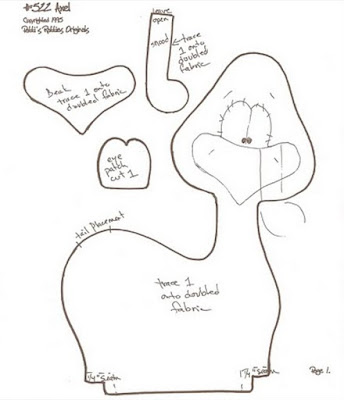 #522 Axel
Copyrighted 1995
Robbi's Rubbles Originals
leave
open
snood
trace
1 onto
doubled
fabric
Beak
trace 1 onto
doubled fabric
eye
patch
cut 1
tail placement
trace 1
onto doubled
fabric
1/4" seam
1/4" seam
Page 1.